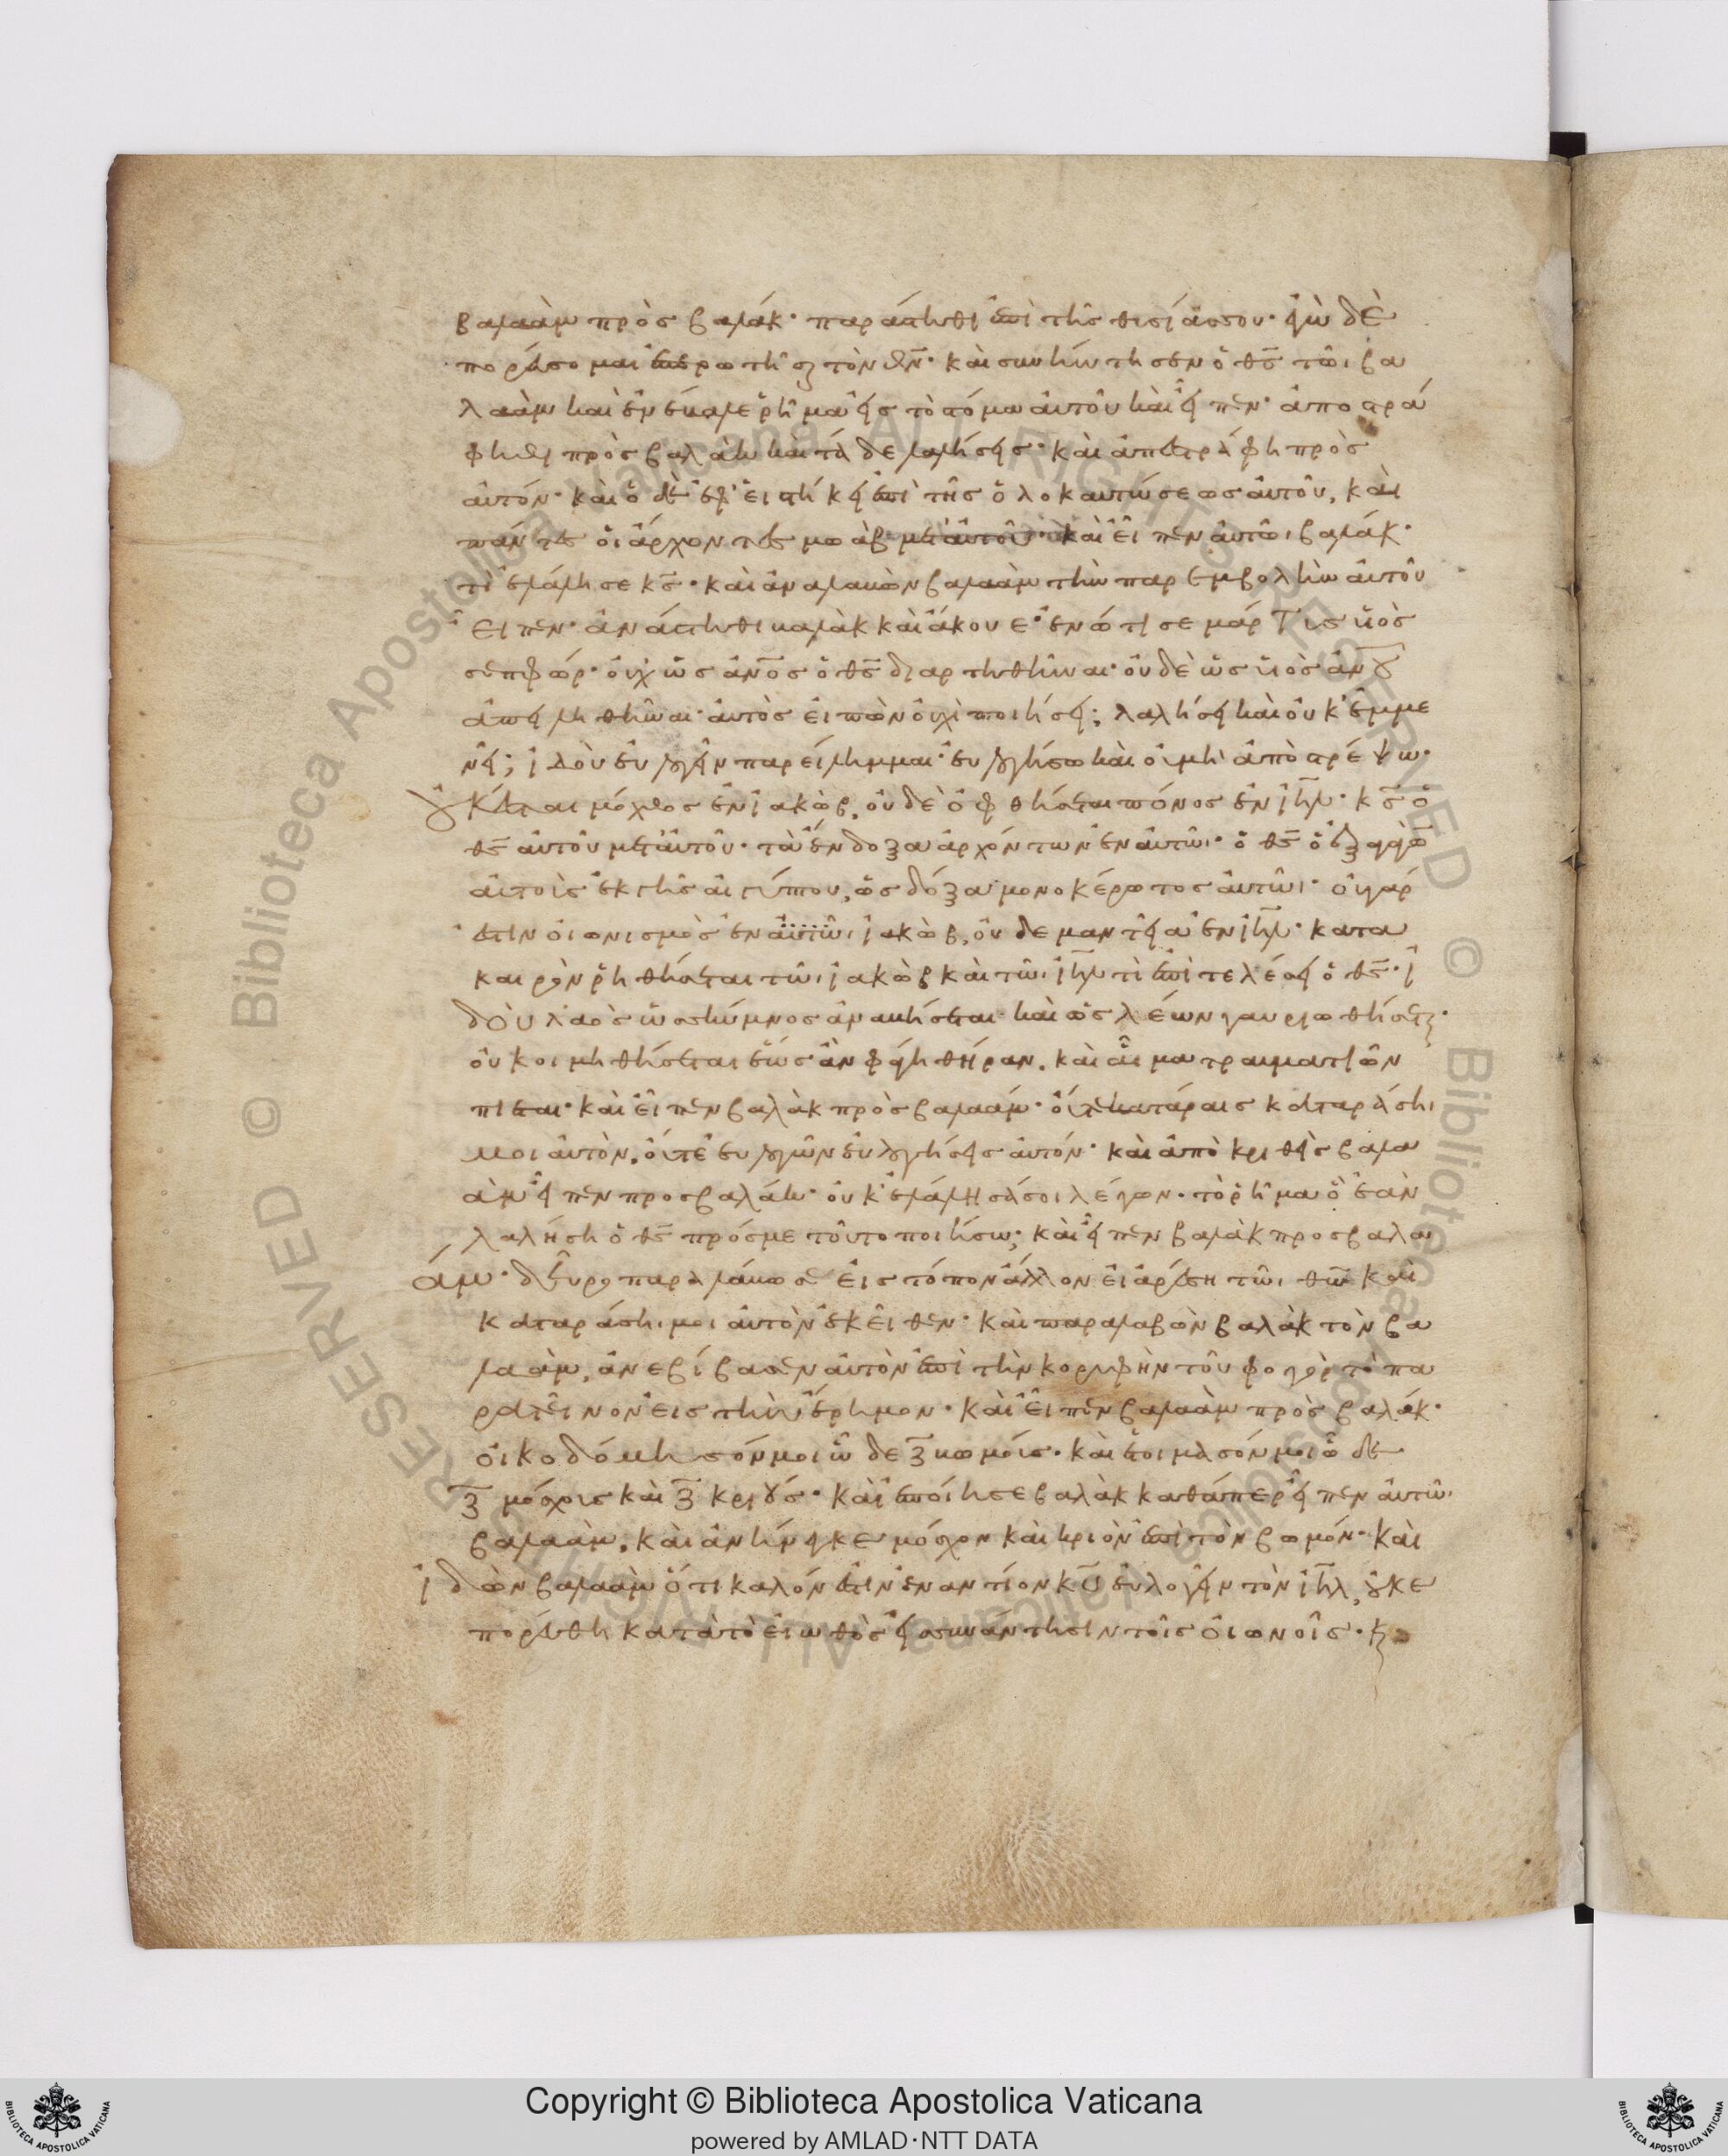 βαλαὰμ πρὸς βαλάκ· παράστηθι ἐπὶ τῆς θυσίας σου· ἐγὼ δὲ
πορεύσομαι ἐπερωτῆσαι τὸν θν̅· καὶ συνήντησεν ὁ θς̅ τῶι βα
λαὰμ καὶ ἐνέβαλε ῥῆμα εἰς τὸ στόμα αὐτοῦ καὶ εἶπεν· ἀποστρά
φηθι πρὸς βαλὰκ καὶ τάδε λαλήσεις· καὶ ἀπεστράφη πρὸς
αὐτόν· καὶ ὁ δὲ ἐφειστήκει ἐπὶ τῆς ὁλοκαυτώσεως αὐτοῦ, καὶ
πάντες οἱ ἄρχοντες μωὰβ μετ' αὐτοῦ· καὶ εἶπεν αὐτῶι βαλάκ·
τί ἐλάλησε κς̅· καὶ ἀναλαβὼν βαλαὰμ τὴν παρεμβολὴν αὐτοῦ
εἶπεν· ἀνάστηθι βαλὰκ καὶ ἄκουε· ἐνώτισε μάρτυς υἱὸς
σεπφώρ· οὐχ ὡς ἄνο̅ς ὁ θς̅ διαρτηθῆναι· οὐδὲ ὡς υἱὸς ἀνο̅υ
ἀπειληθῆναι· αὐτὸς εἰπὼν οὐχὶ ποιήσει; λαλήσει καὶ οὐκ ἐμμε
νεῖ; ἰδοὺ εὐλογεῖν παρείλημμαι· εὐλογήσω καὶ οὐ μὴ ἀποστρέψω·
οὐκ ἔσται μόχθος ἐν ἰακώβ, οὐδὲ ὀφθήσεται πόνος ἐν ιη̅λ· κς̅ ὁ
θς̅ αὐτοῦ μετ' αὐτοῦ· τὰ ἔνδοξα ἀρχόντων ἐν αὐτῶι· ὁ θς̅ ὁ ἐξαγαγὼν
αὐτοὺς ἐκ γῆς αἰγύπτου, ὡς δόξα μονοκέρωτος αὐτῶι· οὐ γάρ
ἐστιν οἰωνισμὸς ἐν αὐτῶι ἰακώβ, οὐδὲ μαντεία ἐν ιη̅λ· κατα
καιρὸν ῥηθήσεται τῶι ἰακὼβ καὶ τῶι ιη̅λ τί ἐπιτελέσει ὁ θς̅· ἰ
δοὺ λαὸς ὡς σκύμνος ἀναστήσεται καὶ ὡς λέων γαυριωθήσεται·
οὐ κοιμηθήσεται ἕως ἂν φάγη θήραν, καὶ αἷμα τραυματιῶν
πίεται· καὶ εἶπεν βαλὰκ πρὸς βαλαάμ· οὔτε κατάραις καταράση
μοι αὐτόν, οὔτε εὐλογῶν εὐλογήσεις αὐτόν· καὶ ἀποκριθεὶς βαλα
ὰμ εἶπεν προς βαλάκ· οὐκ ἐλάλησά σοι λέγων· τὸ ῥῆμα ὃ ἐὰν
λαλήση ὁ θς̅ πρός με τοῦτο ποιήσω; καὶ εἶπεν βαλὰκ προς βαλα
άμ· δεῦρο παραλάβω σε εἰς τόπον ἄλλον εἰ ἀρέση τῶι θω̅ καὶ
καταράση μοι αὐτὸν ἐκεῖθεν· καὶ παραλαβὼν βαλὰκ τὸν βα
λαὰμ, ἀνεβίβασεν αὐτὸν ἐπὶ τὴν κορυφὴν τοῦ φογὼρ τὸ πα
ρατεῖνον εἰς τὴν ἔρημον· καὶ εἶπεν βαλαὰμ πρὸς βαλάκ·
οἰκοδόμησόν μοι ὧδε ζ̅ βωμούς· καὶ ἑτοίμασόν μοι ὧδε
ζ̅ μόσχους καὶ ζ̅ κριούς· καὶ ἐποίησε βαλὰκ καθάπερ εἶπεν αὐτῶι
βαλαάμ, καὶ ἀνήνεγκε μόσχον καὶ κριὸν ἐπὶ τὸν βωμόν· καὶ
ἰδὼν βαλαὰμ ὅτι καλόν ἐστιν ἐναντίον κυ̅ εὐλογεῖν τὸν ιη̅λ, οὐκ ε
πορεύθη κατὰ τὸ εἰωθὸς εἰς συνάντησιν τοῖς οἰωνοῖς· καὶ
Copyright © Biblioteca Apostolica Vaticana
powered by AMLAD·NTT DATA